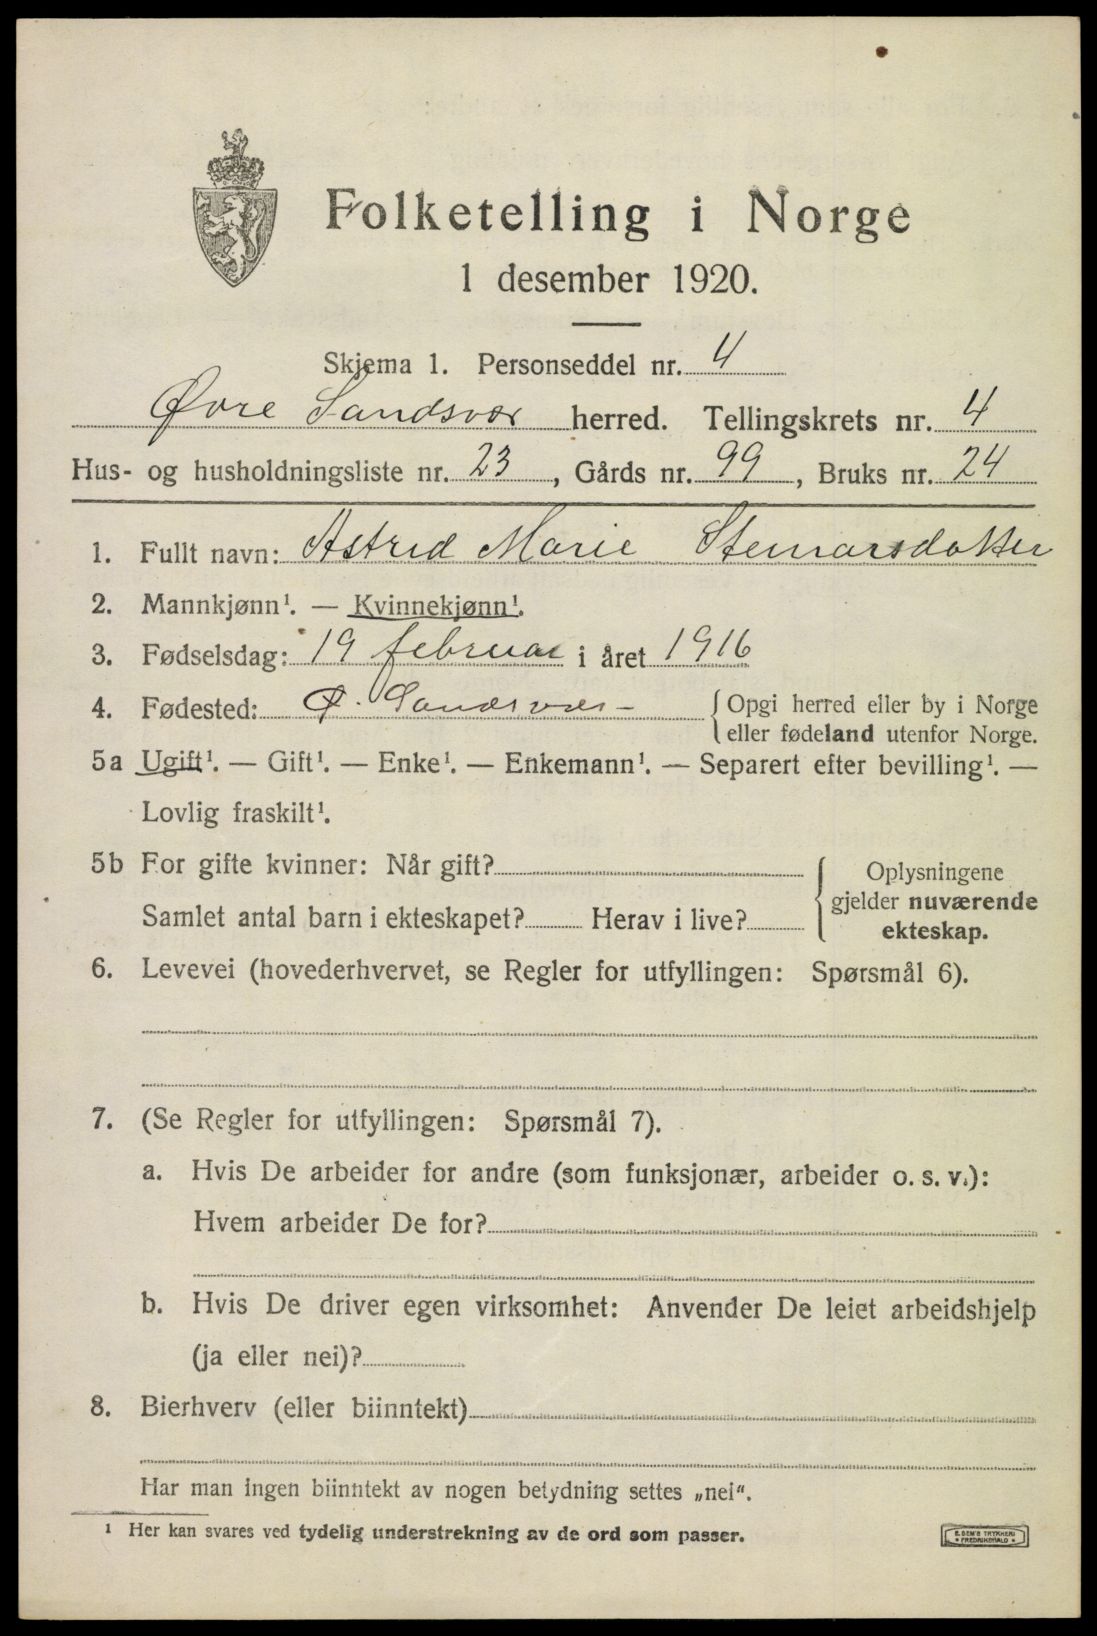 Folketelling i Norge
1 desember 1920.
Skjema 1. Personseddel nr. 4
Øvre Sandsvær herred. Tellingskrets nr. 4
Hus- og husholdningsliste nr. 23, Gårds nr. 99, Bruks nr. 24
1. Fullt navn: Astrid Marie Steinarsdatter
2. Mannkjønn¹. — Kvinnekjønn¹.
3. Fødselsdag: 19 februar i året 1916
4. Fødested: Ø. Sandsvær - { Opgi herred eller by i Norge
eller fødeland utenfor Norge.
5a Ugift¹. — Gift¹. — Enke¹. — Enkemann¹. — Separert efter bevilling¹. —
Lovlig fraskilt¹.
5b For gifte kvinner: Når gift?
Samlet antal barn i ekteskapet? Herav i live?
Oplysningene
gjelder nuværende
ekteskap.
6. Levevei (hovederhvervet, se Regler for utfyllingen: Spørsmål 6).
7. (Se Regler for utfyllingen: Spørsmål 7).
a. Hvis De arbeider for andre (som funksjonær, arbeider o. s. v.):
Hvem arbeider De for?
b. Hvis De driver egen virksomhet: Anvender De leiet arbeidshjelp
(ja eller nei)?
8. Bierhverv (eller biinntekt)
Har man ingen biinntekt av nogen betydning settes „nei“.
¹ Her kan svares ved tydelig understrekning av de ord som passer.
E. SEM'S TRYKKERI
FREDRIKSHALD